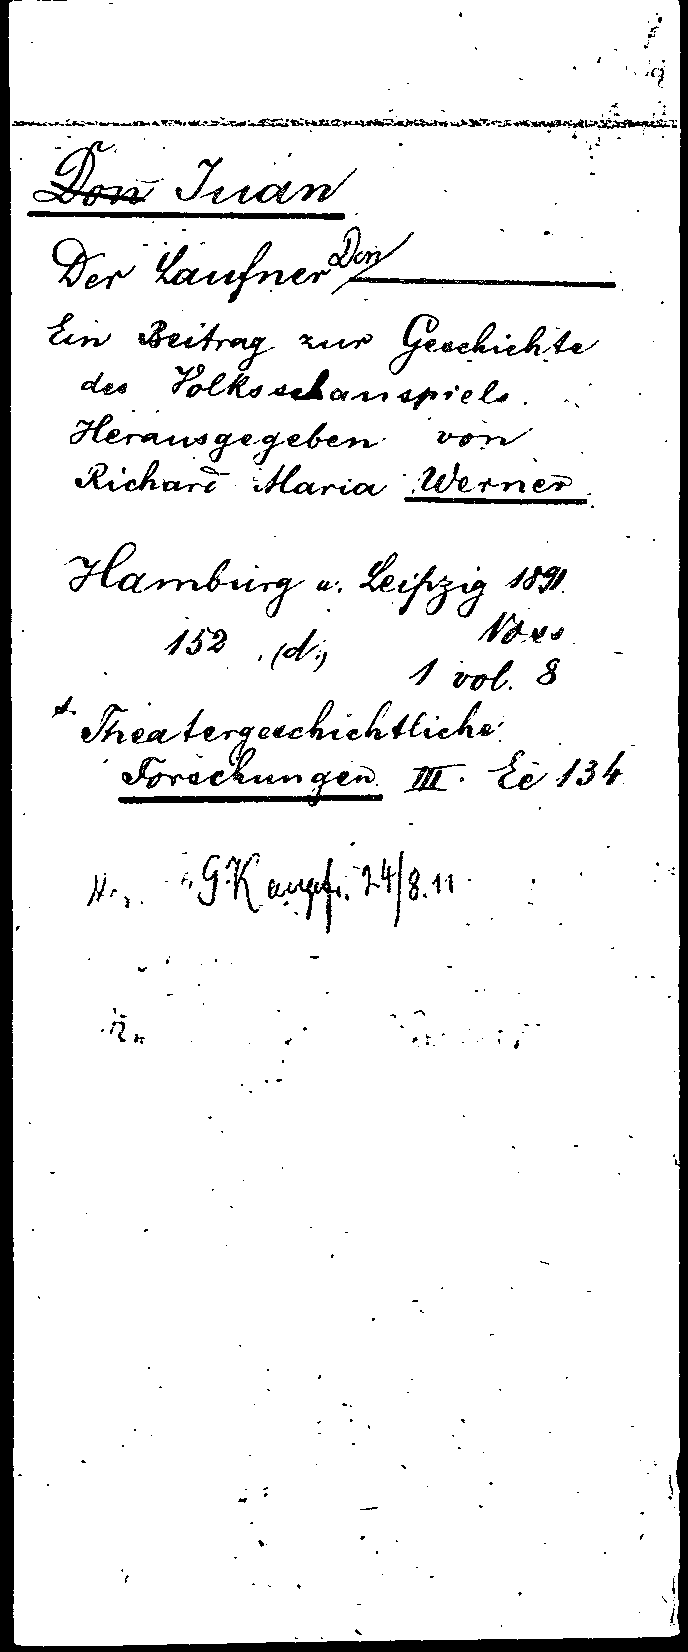 Don Juan
Der Laufner Don
Ein Beitrag zur Geschichte
des Volksschauspiels.
Herausgegeben von
Richard Maria Werner.
Hamburg u. Leipzig 1891.
152 (d.) Voss
1 vol. 8
Theatergeschichtliche
Forschungen III. Ee 134
24/8.11